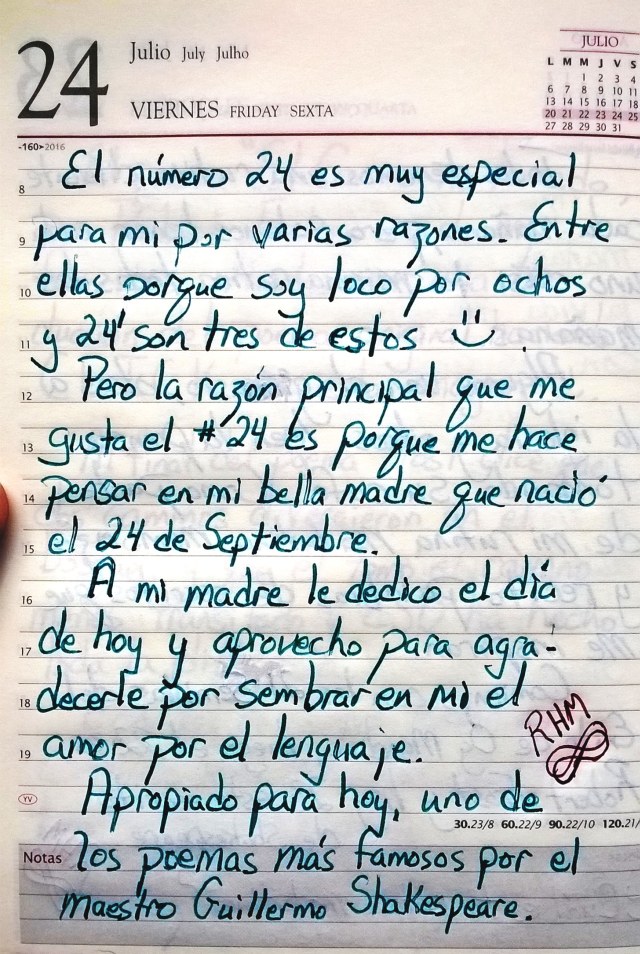 24
Julio July Julho
VIERNES FRIDAY SEXTA
JULIO
L M M J V S
1 2 3 4
6 7 8 9 10 11
13 14 15 16 17 18
20 21 22 23 24 25
27 28 29 30 31
-160▸2016
El número 24 es muy especial
8
para mi por varias razones. Entre
9
ellas porque soy loco por ochos
10
y 24 son tres de estos
11
Pero la razón principal que me
12
gusta el #24 es porque me hace
13
pensar en mi bella madre que nació
14
el 24 de Septiembre.
15
A mi madre le dedico el día
16
de hoy y aprovecho para agra-
17
decerle por sembrar en mi el
18
amor por el lenguaje.
19
RHM
Apropiado para hoy, uno de
YV
30.23/8 60.22/9 90.22/10 120.21/
Notas
los poemas más famosos por el
maestro Guillermo Shakespeare.